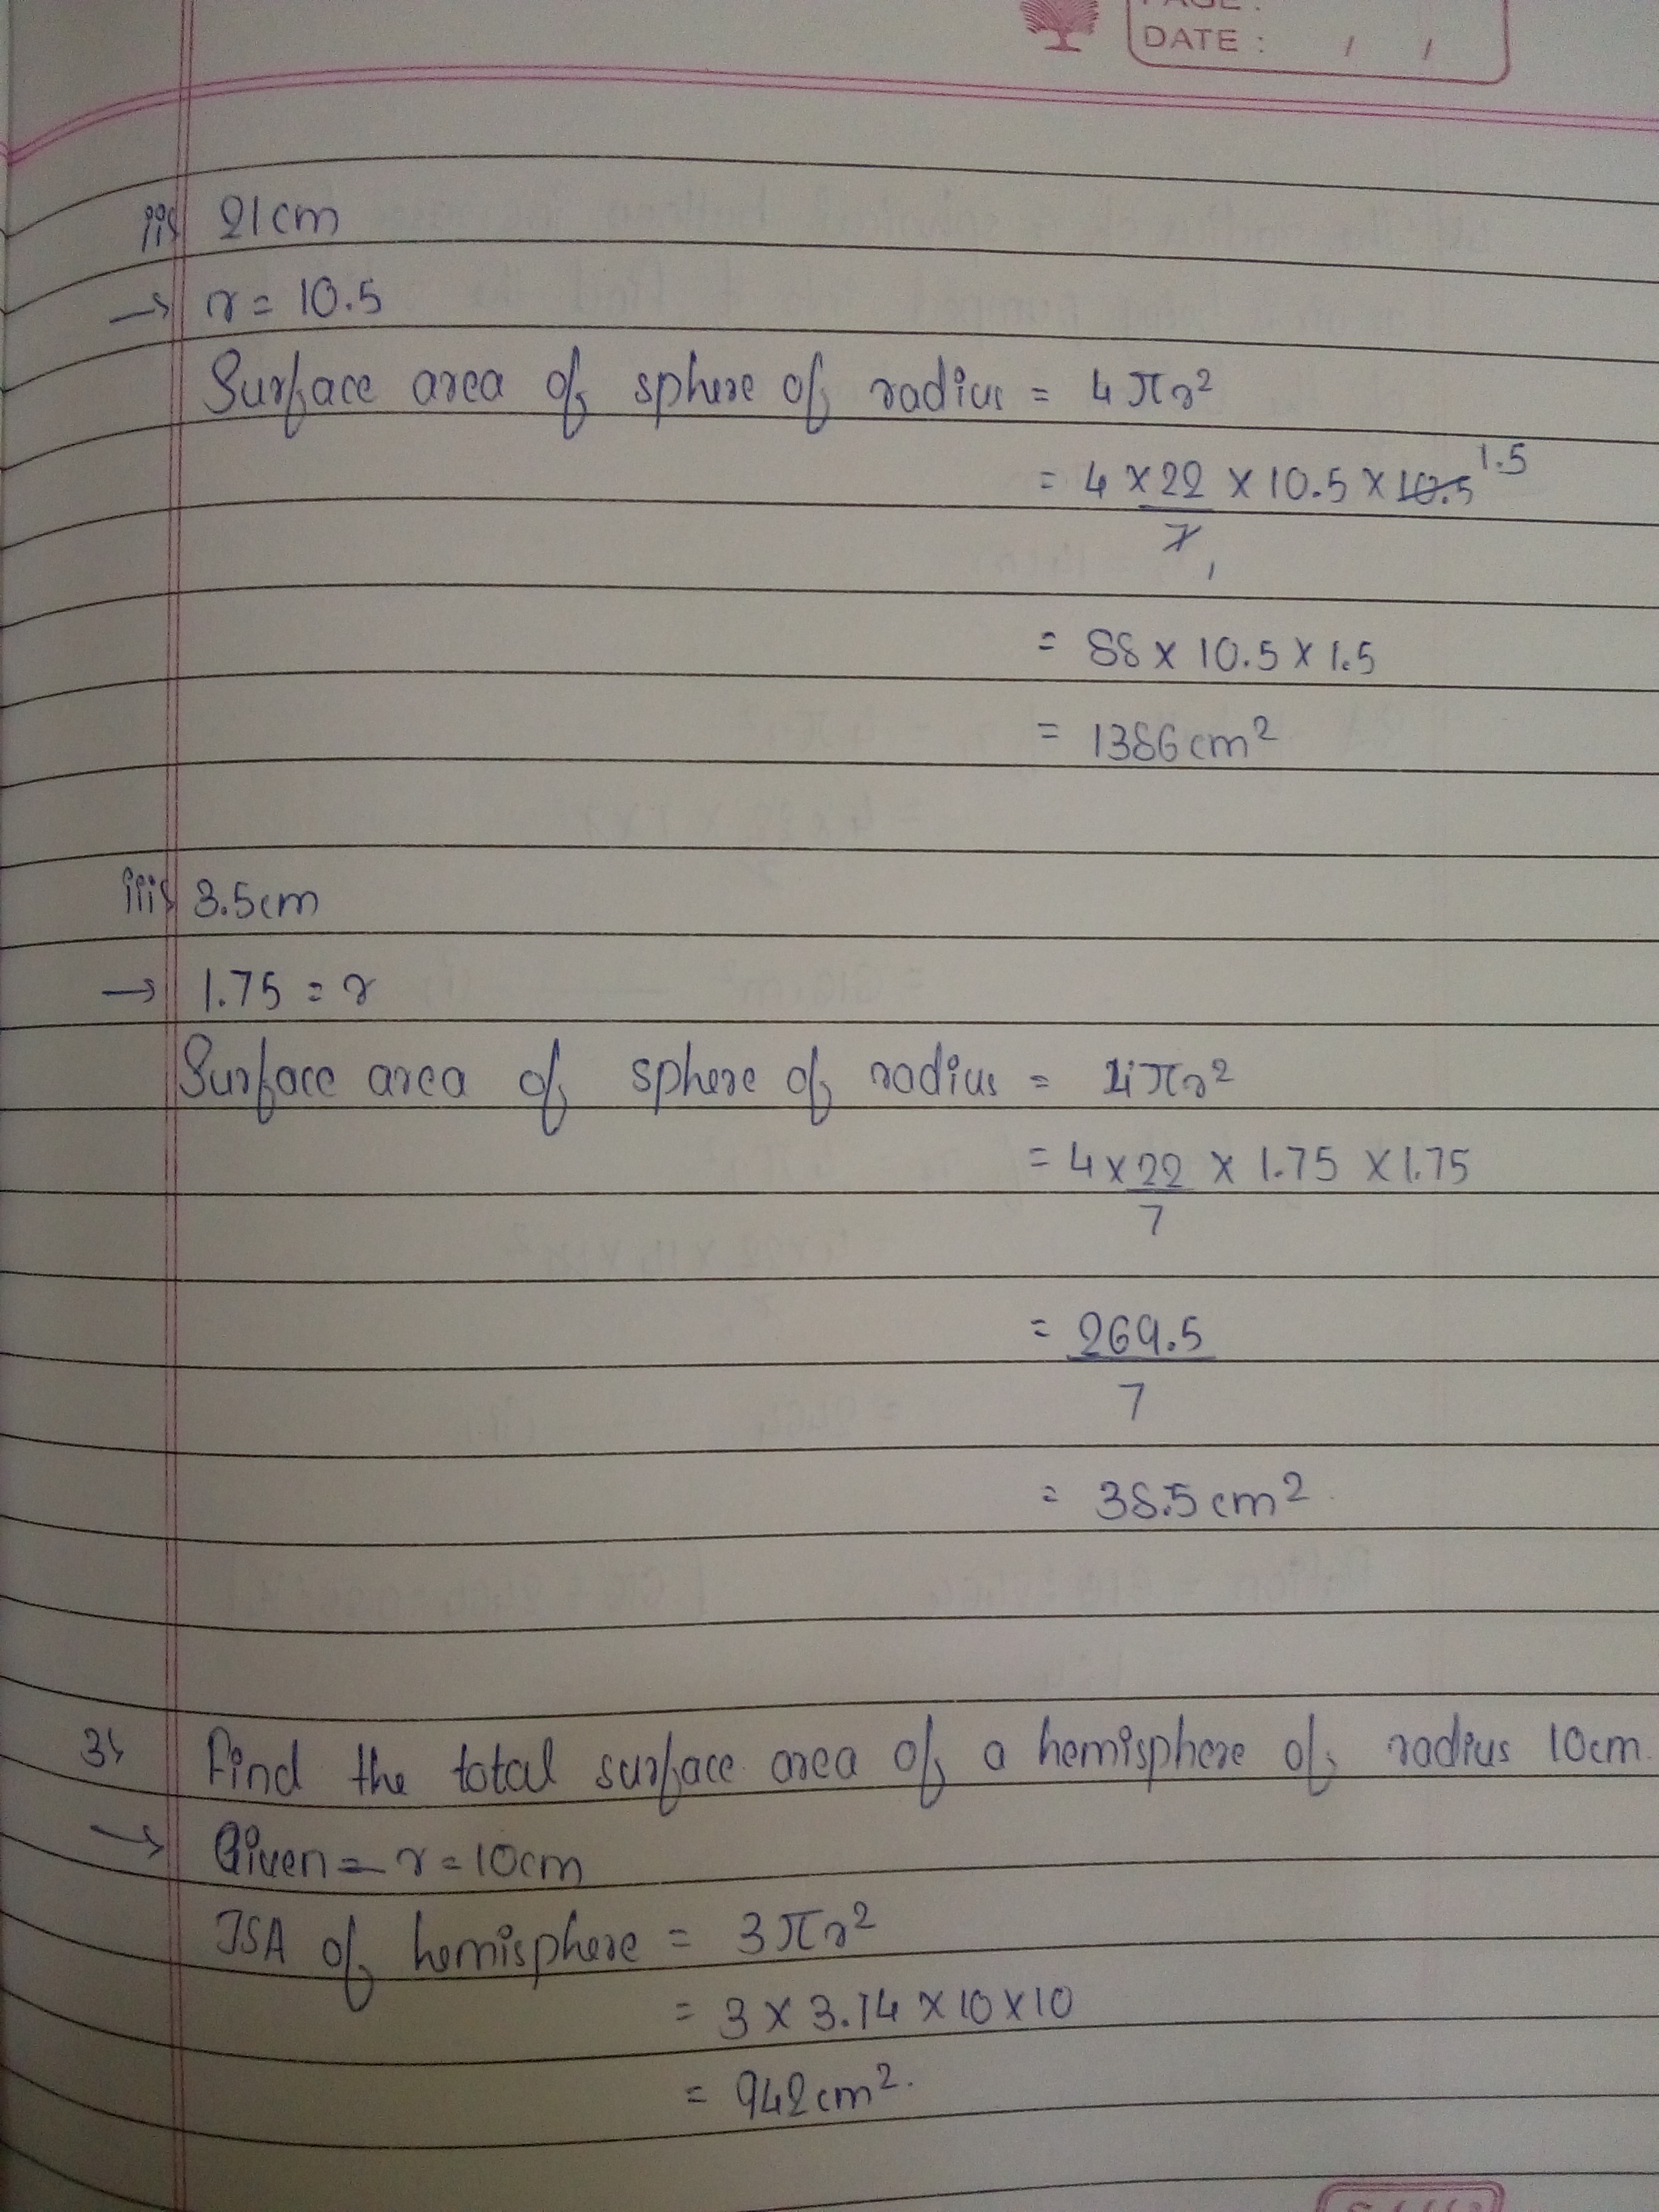 DATE : / /
ii) 21cm
→ r = 10.5
Surface area of sphere of radius = 4πr²
= 4 × 22/7 × 10.5 × 10.5 1.5
1
= 88 × 10.5 × 1.5
= 1386cm²
iii) 3.5cm
→ 1.75 = r
Surface area of sphere of radius = 4πr²
= 4 × 22/7 × 1.75 × 1.75
= 269.5/7
= 38.5cm²
3) Find the total surface area of a hemisphere of radius 10cm.
→ Given = r = 10cm
TSA of hemisphere = 3πr²
= 3 × 3.14 × 10 × 10
= 942cm².